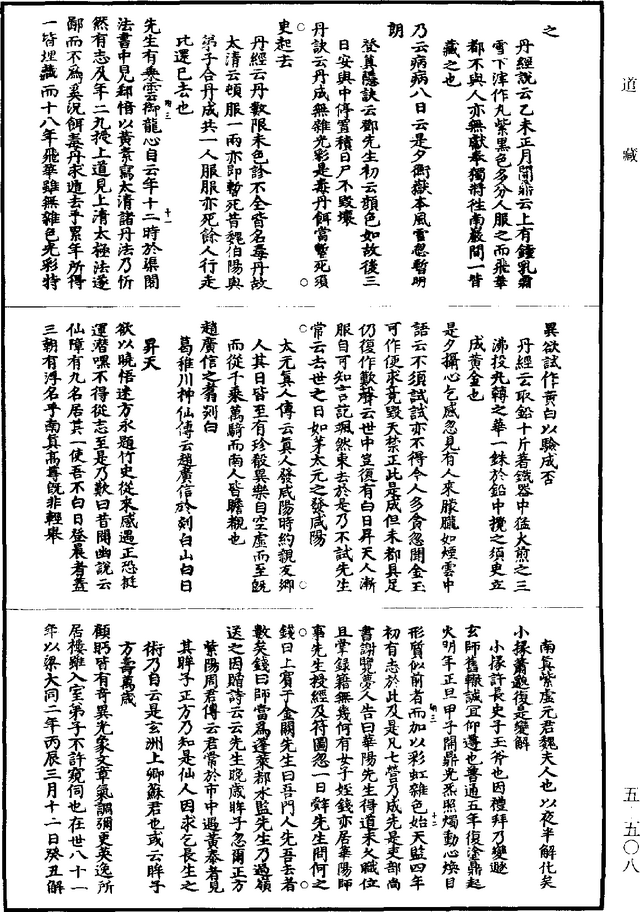 之
丹經說云乙未正月開鼎云上有鍾乳霜
雪下滓作丸紫黑色多分人服之而飛華
都不與人亦無獻奉獨將往南嚴間一皆
藏之也
乃云病病八日云是夕衡嶽本風雪忽暫明
朗
登真隱訣云鄧先生初云顏色如故後三
日安輿中停置積日尸不毀壞
丹訣云丹成無雜光彩是毒丹餌當暫死須
臾起去
丹經云丹數限未色診不全皆名毒丹故
太清云頓服一兩亦即暫死昔魏伯陽與
弟子合丹成共一人服服亦死餘人行走
比還已去也
先生有乘雲御龍心自云年十二時於渠閣
法書中見郄愔以黃素寫太清諸丹法乃忻
然有志及年二九授上道見上清太極法遂
鄙而不為奚況餌毒丹求遁去乎累年所得
一皆埋藏而十八年飛華雖無雜色光彩特
異欲試作黃白以驗成否
丹經云取鉛十斤著鐵器中猛火煎之三
沸投九轉之華一銖於鉛中攪之須臾立
成黃金也
是夕攝心乞感忽見有人來朦朧如煙雲中
語云不須試試亦不得今人多貪忽聞金玉
可作便求競毀天禁正此是成但未都具足
仍復作歎聲云世中豈復有白日昇天人漸
服自可知言訖颯然東去於是乃不試先生
常云去世之日如茅太元之發咸陽
太元真人傳云真人發咸陽時約親友鄉
人其日皆至有珍殽異樂自空虛而至旣
而從千乘萬騎而南人皆瞻觀也
趙廣信之翥剡白
葛稚川神仙傳云趙廣信於剡白山白日
昇天
欲以曉悟逮方永題竹史從來感遇正恐挺
運磨嘿不得從志至是乃歎曰昔聞幽說云
仙障有九名居其一使吾不白日登晨者蓋
三朝有浮名乎南真高尊旣非輕舉
南真紫虛元君魏夫人也以夜半解化矣
小掾蕭邈復是變解
小掾許長史子玉斧也因禮拜乃變遯
玄師舊轍誠宜仰遵也普通五年復塗鼎起
火明年正旦甲子開鼎光炁照燭動心煥目
形質似前者而加以彩虹雜色始天監四年
初有志於此及是凡七營乃成先是吏部尚
書謝覽夢人告曰華陽先生得道未久職位
且掌錄籍無幾何有女子姓錢亦居華陽師
事先生授經及符圖忽一日辭先生問何之
錢曰上賓于金闕先生曰吾門人先吾去者
數矣錢曰師當為蓬萊都水監先生乃過嶺
送之因贈詩云云先生晚歲眸子忽爾正方
紫陽周君傳云君常於市中遇黃泰者見
其眸子正方乃知是仙人因求乞長生之
術乃自云是玄洲上卿蘇君也或云眸子
方壽萬歲
顧眄皆有奇異光象文章氣調彌更英逸所
居樓雖入室弟子不許窺伺也在世八十一
年以梁大同二年丙辰三月十二日癸丑解
道藏
五·五〇八